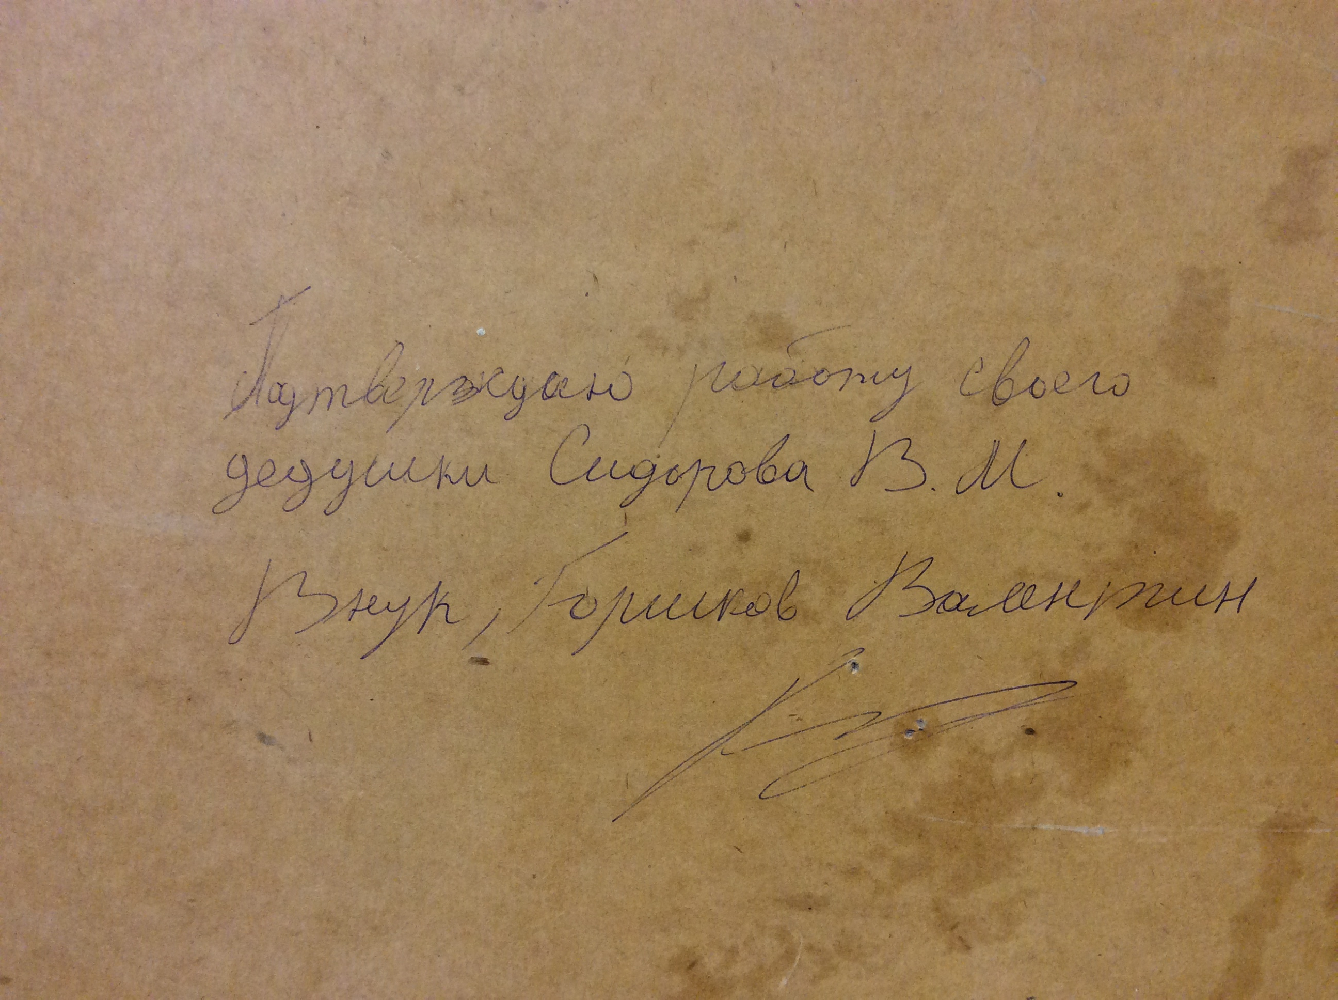 Подтверждаю работу своего
дедушки Сидорова В. М.
Внук, Горшков Валентин